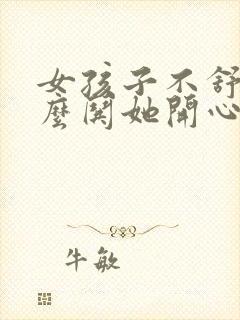 女孩子不舒
麼関她開心
牛敏